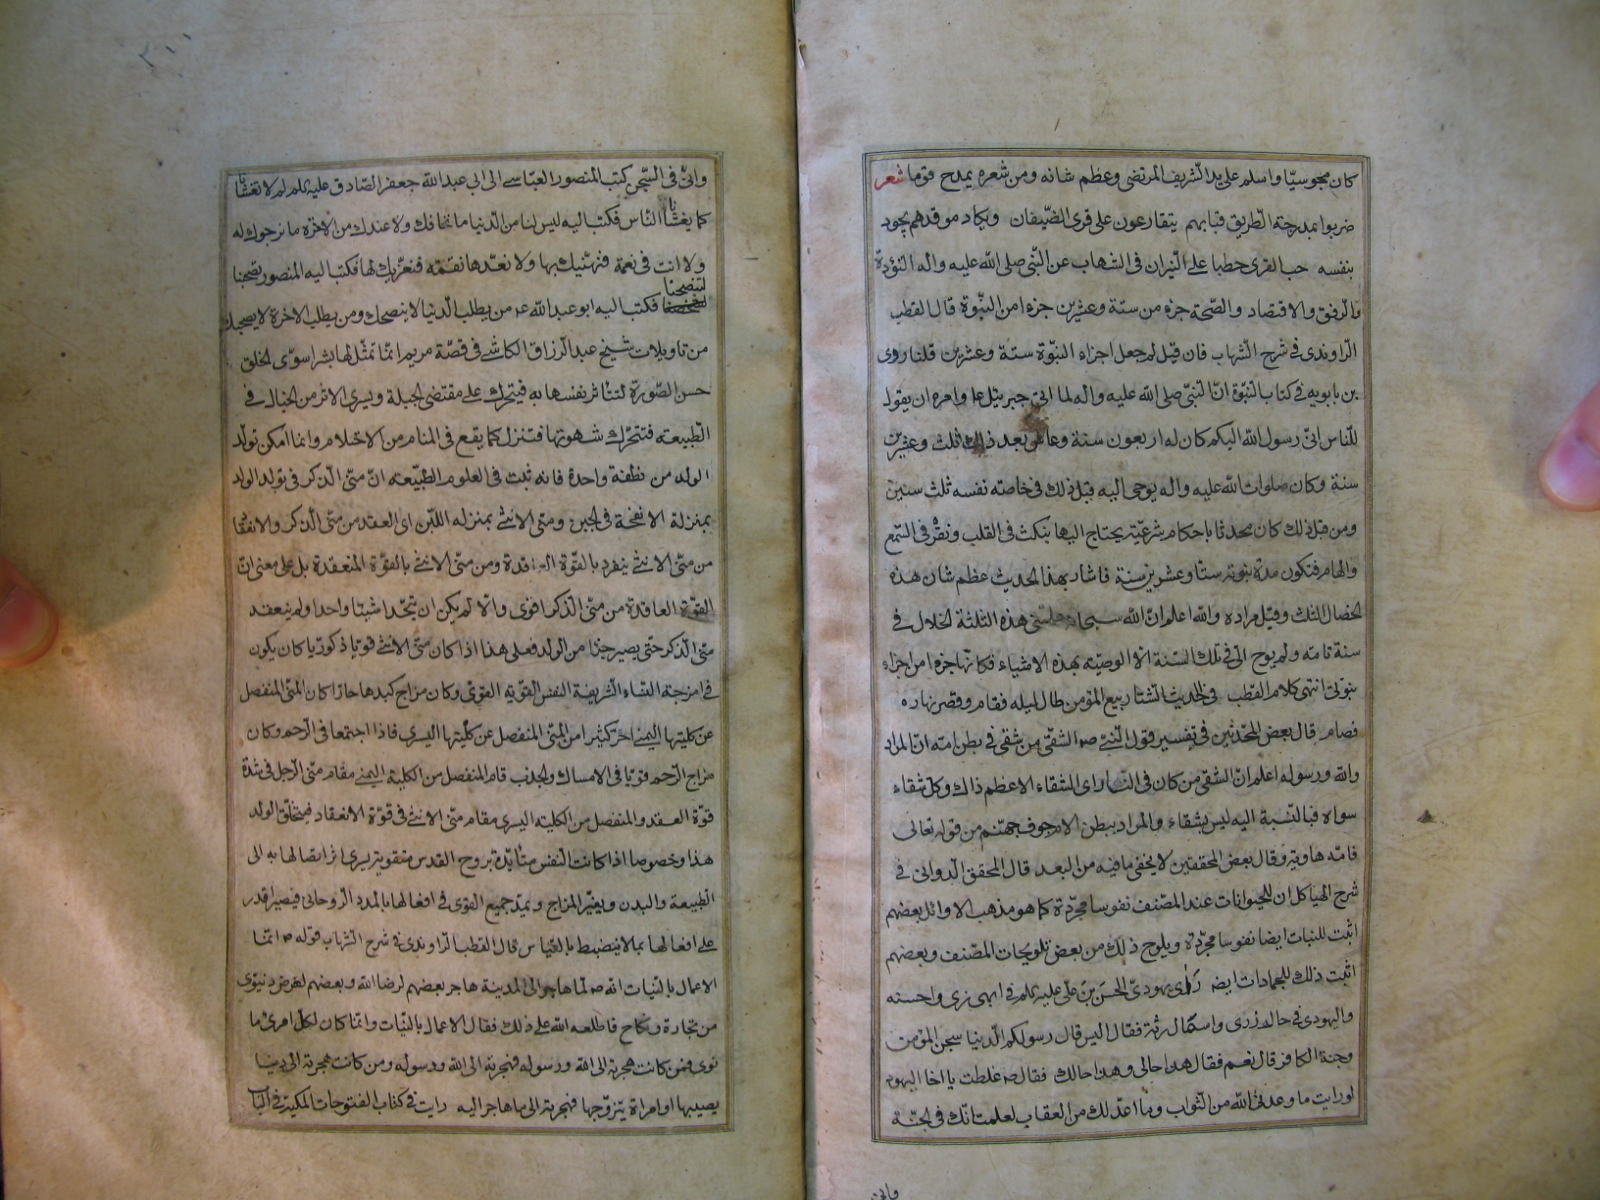 كان مجوسيّا واسلم على يد الشريف المرتضى وعظم شانه ومن شعره يمدح قوما شعر
ضربوا بمدرجة الطريق قبابهم يتقارعون على قرى الضّيفان ويكاد موقدهم يجود
بنفسه حب القرى حطبا على النّيران فى الشهاب عن النّبى صلى الله عليه واله التّؤدة
والرفق والاقتصاد والصّحة جزء من ستة وعشرين جزءا من النّبوة قال القطب
الرّاوندى فى شرح الشّهاب فان قيل لم جعل اجزاء النبوّة ستة وعشرين قلنا روى
بن بابويه فى كتاب النّبوة انّ النّبىّ صلى الله عليه واله لما اتى جبرئيل ع وامره ان يقول
للنّاس انّى رسول الله اليكم كان له اربعون سنة وعاش بعد ذلك ثلث وعشرين
سنة وكان صلوات الله عليه واله يوحى اليه قبل ذلك فى خاصته نفسه ثلث سنين
ومن قبل ذلك كان محدثا باحكام شرعيّة يحتاج اليها بنكث فى القلب ونقر فى السّمع
والهام فتكون مدة نبوته ستا وعشرين سنة فاشار بهذا الحديث عظم شان هذه
الخصال الثلث وقيل مراده والله اعلم انّ الله سبحانه هذه الثلثة الخلال فى
سنة تامة ولم يوح الىّ فى تلك السّنة الا الوصيّة بهذه الاشياء فكانها جزء من اجزاء
نبوتى انتهى كلام القطب فى الحديث الشتا ربيع المؤمن طال ليله فقام وقصر نهاره
فصام قال بعض المحدّثين فى تفسير قول النّبى ص الشقىّ من شقى فى بطن امه انّ المراد
والله ورسوله اعلم انّ الشقى من كان فى النّار اى للشقاء الاعظم ذاك وكل شقاء
سواه فبالنّسبة اليه ليس بشقاء والمراد ببطن الام جوف جهنّم من قوله تعالى
فامّه هاوية وقال بعض المحققين لا يخفى ما فيه من البعد قال المحقق الدوانى فى
شرح الهياكل ان للحيوانات عند المصّنف نفوسا مجرّدة كما هو مذهب الاوائل وبعضهم
اثبت للنبات ايضا نفوسا مجرّدة ويلوح ذلك من بعض تلويحات المصّنف وبعضهم
اثبت ذلك للجمادات ايضه راى يهودىّ الحسن بن على عليه السلم فى ابهى زى واحسنه
واليهودى فى حال ردى واسمال رثة فقال اليس قال رسولكم الدّنيا سجن المؤمن
وجنة الكافر قال نعم فقال هذا حالى وهذا حالك فقال ص غلطت يا اخا اليهود
لو رايت ما وعدنى الله من الثواب وما اعدّ لك من العقاب لعلمت انّك فى الجنّة
وانى
وانّى فى السّجن كتب المنصور العبّاسے الى ابى عبد الله جعفر الصّادق عليه السلم لم لا تغشانا
كما يغشانا النّاس فكتب اليه ليس لنا من الدّنيا ما نخافك ولا عندك من الاخرة ما نرجوك له
ولا انت فى نعمة فنهنيك بها ولا نعدّها نقمه فنعزّيك لها فكتب اليه المنصور تصحبنا
لتنصحنا فكتب اليه ابو عبد الله ع من يطلب الدّنيا لا ينصحك ومن يطلب الاخرة لا يصحبك
من تاويلات شيخ عبد الرزاق الكاشے فى قصّة مريم انّما تمثّل لها بشرا سوّى الخلق
حسن الصّورة لتتاثر نفسها به فيتحرك على مقتضى الجبلة ويسرى الاثر من الخيال فى
الطّبيعة فتتحرّك شهوتها فتنزل كما يقع فى المنام من الاحتلام وانما امكن تولّد
الولد من نطفة واحدة فانه ثبت فى العلوم الطّبيعه انّ منّى الذكر فى تولد الولد
بمنزلة الانفحة فى الجبن ومنى الانثى بمنزله اللبن اى العقد من منّى الذكر والانعقاد
من منّى الانثى ينفرد بالقوّة العاقدة ومن منّى الانثى بالقوّة المنعقدة بل على معنى انّ
القوّة العاقدة من منّى الذكر اقوى والّا لم يكن ان يتّحدا شيئا واحدا ولم ينعقد
منّى الذكر حتى يصير جزءا من الولد فعلى هذا اذا كان منّى الانثى قويّا ذكوريّا كان يكون
فى امزجة النساء الشريفة النفس القوّية القوى وكان مزاج كبدها حارّا كان المنى المنفصل
عن كليتها اليمنى احرّ كثيرا من المنّى المنفصل عن كليتها اليسرى فاذا اجتمعا فى الرّحم وكان
مزاج الرّحم قويّا فى الامساك والجذب قام المنفصل من الكلية اليمنى مقام منّى الرّجل فى شدّة
قوّة العقد والمنفصل من الكلية اليسرى مقام منّى الانثى فى قوّة الانعقاد فيتخلّق الولد
هذا وخصوصا اذا كانت النفس متأيّدة بروح القدس متقوية يسرى اثر اتصالها به الى
الطّبيعة والبدن ويغيّر المزاج ويمدّ جميع القوى فى افعالها بالمدد الرّوحانى فيصير اقدر
على افعالها بما لا ينضبط بالقياس قال القطب الراوندى فى شرح الشّهاب قوله ص انّما
الاعمال بالنّيات انّه ص لما هاجر الى المدينة هاجر بعضهم لرضا الله وبعضهم لغرض دنيوى
من تجارة ونكاح فاطلعه الله على ذلك فقال الاعمال بالنّيات وانّما كان لكل امرئ ما
نوى فمن كانت هجرته الى الله ورسوله فهجرته الى الله ورسوله ومن كانت هجرته الى دنيا
يصيبها او امراة يتزوّجها فهجرته الى ما هاجر اليه رايت فى كتاب الفتوحات المكية فى الباب